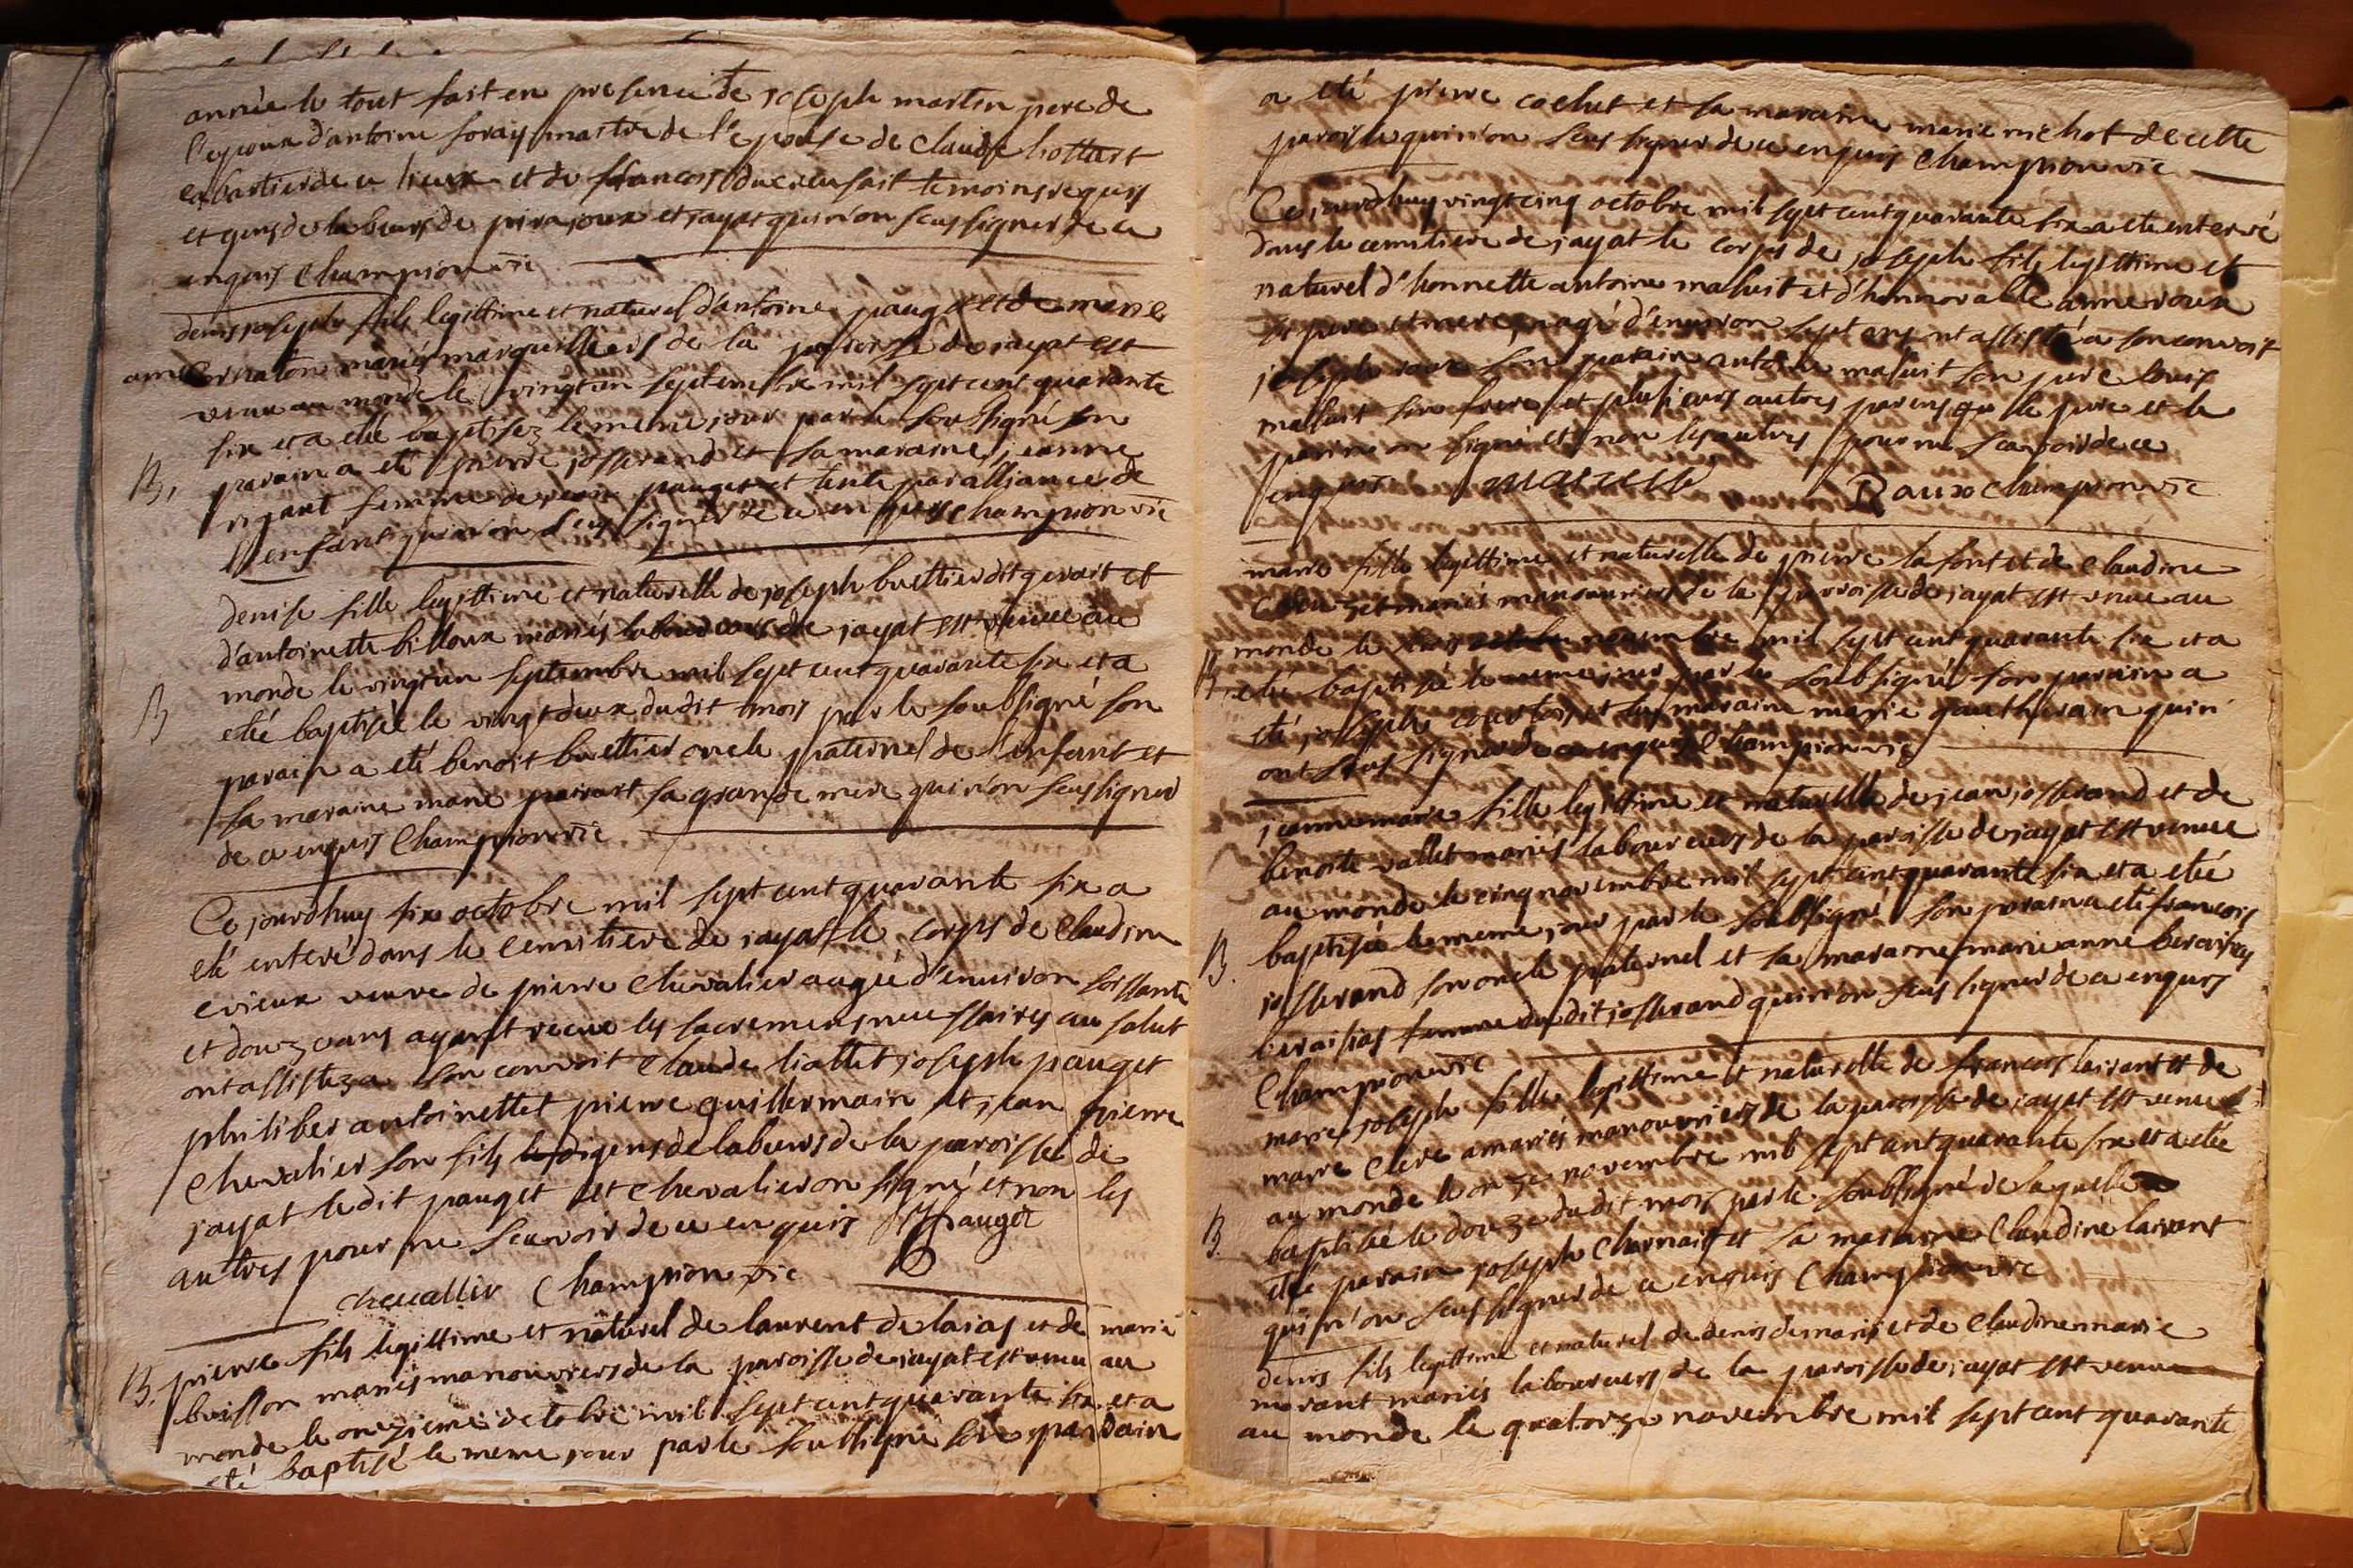 année le tout fait en presence de joseph martin pere de
l'epoux d'antoine maitre de l'epouse de Claude
de ce lieux et de francois temoins requis
et gens de labeurs de pirajoux et jayat qui n'on sçus signer de ce
enquis Champion vic
denis joseph fils legittime et naturel d'antoine pauget et de marie
mariés marguilliers de la paroisse de jayat est
venu au monde le vingt un septembre mil sept cent quarante
six et a eté baptisez le meme jour par le soubsigné son
B, parain a eté pierre josserand et sa maraine jeanne
rigaut femme de jean pauget et tente par alliance de
l'enfant qui n'on sçus signer de ce enquis Champion vic
denise fille legittime et naturelle de joseph buettier dit gerait et
d'antoinette billoux mariés laboureurs de jayat est venue au
monde le vingt un septembre mil sept cent quarante six et a
B eteé baptisée le vingt deux dudit mois par le soubsigné son
parain a eté benoit buettier oncle paternel de l'enfant et
sa maraine marie sa grande mere qui n'on sçus signer
de ce enquis Champion vic
Ce jourdhuy six octobre mil sept cent quarante six a
eté enteré dans le cemitiere de jayat le corps de Claudine
evieux veuve de pierre Chevalier augée d'environ soissante
et douze ans ayant recue les sacremens necessaires au salut
ont assistez a son convoit Claude liattet joseph pauget
philiber antoinettet pierre guillermain et jean pierre
Chevalier son fils gens de labeurs de la paroisse de
jayat ledit pauget et Chevalier on signé et non les
autres pour ne scavoir de ce enquis J Pauget
chevallier Champion vic
B. pierre fils legittime et naturel de laurent de laias et de marie
buisson mariés manouvriers de la paroisse de jayat est venu au
monde le onzieme octobre mil sept cent quarante six et a
eté baptisé le meme jour par le soubsigné son parain
a eté pierre cochet et sa maraine marie michot de cette
paroisse qui n'on sçus signer de ce enquis Champion vic
Ce jourdhuy vingt cinq octobre mil sept cent quarante six a eté enterré
dans le cemitiere de jayat le corps de joseph fils legittime et
naturel d'honnette antoine maluit et d'honnorable anne roux
pere et mere agé d'environ sept ans ont assisté a son convoit
joseph roux son parain antoine maluit son pere louis
maluit son frere et plusieurs autres parens que le pere et le
parain on signé et non les autres pour ne scavoir de ce
enquis Raux Champion vic
marie fille legittime et naturelle de pierre la font et de Claudine
mariés manouvriers de la parroisse de jayat est venue au
monde le trois novembre mil sept cent quarante six et a
B. eteé baptisée le meme jour par le soubsigné son parain a
eté joseph courtois et sa maraine marie gautherain qui n'
ont sçus signer de ce enquis Champion vic
jeanne marie fille legittime et naturelle de jean josserand et de
benoite vallet mariés laboureurs de la paroisse de jayat est venue
au monde le cinq novembre mil sept cent quarante six et a eteé
B. baptisée le meme jour par le soubsigné son parain a eté francois
josserand son oncle paternel et sa maraine marie anne
femme dudit josserand qui n'on sçus signer de ce enquis
Champion vic
marie joseph fille legittime et naturelle de francois lairant et de
marie mariés manouvriers de la paroisse de jayat est venue
au monde le onze novembre mil sept cent quarante six et a eteé
B. baptisée le douze dudit mois par le soubsigné de laquelle a
eté parain joseph et sa maraine Claudine lairant
qui n'on sçus signer de ce enquis Champion vic
denis fils legittime et naturel de denis demaris et de Claudine marie
morant mariés laboureurs de la paroisse de jayat est venu
au monde le quatorze novembre mil sept cent quarante